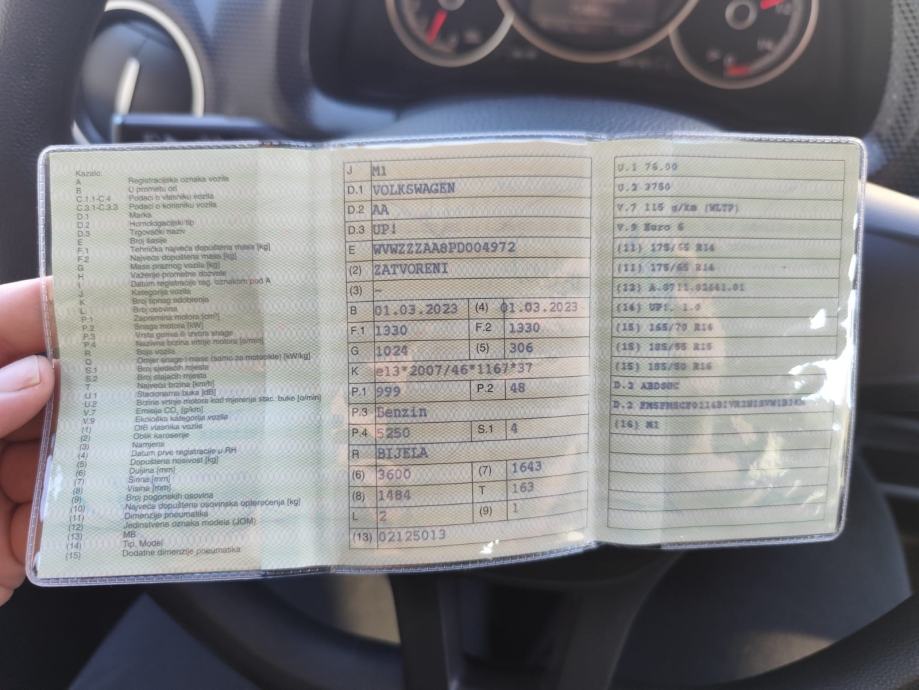 Kazalo:
A Registracijska oznaka vozila
B U prometu od
C.1.1-C.4 Podaci o vlasniku vozila
C.3.1-C.3.3 Podaci o korisniku vozila
D.1 Marka
D.2 Homologacijski tip
D.3 Trgovački naziv
E Broj šasije
F.1 Tehnička najveća dopuštena masa [kg]
F.2 Najveća dopuštena masa [kg]
G Masa praznog vozila [kg]
H Važenje prometne dozvole
I Datum registracije reg. oznakom pod A
J Kategorija vozila
K Broj tipnog odobrenja
L Broj osovina
P.1 Zapremina motora [cm³]
P.2 Snaga motora [kW]
P.3 Vrsta goriva ili izvora snage
P.4 Nazivna brzina vrtnje motora [o/min]
R Boja vozila
Q Omjer snage i mase (samo za motocikle) [kW/kg]
S.1 Broj sjedaćih mjesta
S.2 Broj stajaćih mjesta
T Najveća brzina [km/h]
U.1 Stacionarna buka [dB]
U.2 Brzina vrtnje motora kod mjerenja stac. buke [o/min]
V.7 Emisija CO₂ [g/km]
V.9 Ekološka kategorija vozila
(1) OIB vlasnika vozila
(2) Oblik karoserije
(3) Namjena
(4) Datum prve registracije u RH
(5) Dopuštena nosivost [kg]
(6) Duljina [mm]
(7) Širina [mm]
(8) Visina [mm]
(9) Broj pogonskih osovina
(10) Najveće dopuštena osovinska opterećenja [kg]
(11) Dimenzije pneumatika
(12) Jedinstvena oznaka modela (JOM)
(13) MB
(14) Tip, Model
(15) Dodatne dimenzije pneumatika
J M1
D.1 VOLKSWAGEN
D.2 AA
D.3 UP!
E WVWZZZAA8PD004972
(2) ZATVORENI
(3) –
B 01.03.2023 (4) 01.03.2023
F.1 1330 F.2 1330
G 1024 (5) 306
K e13*2007/46*1167*37
P.1 999 P.2 48
P.3 Benzin
P.4 5250 S.1 4
R BIJELA
(6) 3600 (7) 1643
(8) 1484 T 163
L 2 (9) 1
(13) 02125013
U.1 76.00
U.2 3750
V.7 115 g/km (WLTP)
V.9 Euro 6
(11) 175/65 R14
(11) 175/65 R14
(14) UP!. 1.0
(15) 165/70 R14
(15) 185/55 R15
(15) 185/50 R16
D.2
D.2
(16) M1